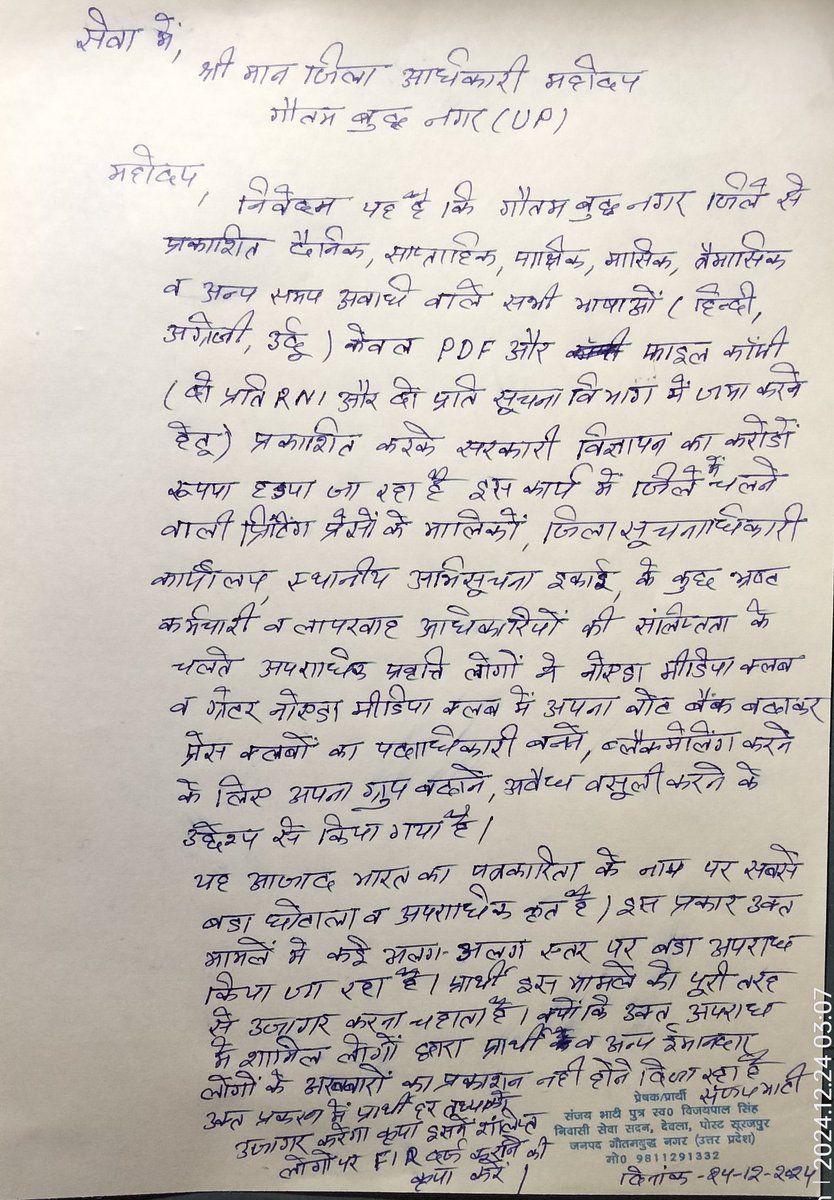 सेवा में,
श्री मान जिला अधिकारी महोदय
गौतम बुद्ध नगर (UP)
महोदय,
निवेदन यह है कि गौतम बुद्ध नगर जिले से
प्रकाशित दैनिक, साप्ताहिक, पाक्षिक, मासिक, त्रैमासिक
व अन्य समय अवधि वाले सभी भाषाओं (हिन्दी,
अंग्रेजी, उर्दू) केवल PDF और फाइल कॉपी
(दो प्रति RNI और दो प्रति सूचना विभाग में जमा करने
हेतू) प्रकाशित करके सरकारी विज्ञापन का करोडों
रूपया हडपा जा रहा है इस कार्य में जिले में चलने
वाली प्रिंटिंग प्रेसों के मालिकों, जिला सूचनाधिकारी
कार्यालय, स्थानीय अभिसूचना इकाई, के कुछ भ्रष्ट
कर्मचारी व लापरवाह अधिकारियों की संलिप्तता के
चलते अपराधिक प्रवृत्ति लोगों ने नोएडा मीडिया क्लब
व ग्रेटर नोएडा मीडिया क्लब में अपना वोट बैंक बढाकर
प्रेस क्लबों का पदाधिकारी बनने, ब्लैकमेलिंग करने
के लिए अपना ग्रुप बढाने, अवैध वसूली करने के
उद्देश्य से किया गया है।
यह आजाद भारत का पत्रकारिता के नाम पर सबसे
बडा घोटाला व अपराधिक कृत है। इस प्रकार उक्त
मामलें में कई अलग-अलग स्तर पर बडा अपराध
किया जा रहा है। प्रार्थी इस मामले को पूरी तरह
से उजागर करना चहाता है। क्यों कि उक्त अपराध
में शामिल लोगों द्वारा प्रार्थी व अन्य ईमानदार
लोगों के अखबारों का प्रकाशन नही होने दिया जा रहा है
उक्त प्रकरण में प्रार्थी हर तथ्य को
उजागर करेगा कृपा इसमें संलिप्त
लोगों पर FIR दर्ज कराने की
कृपा करें।
प्रेषक/प्रार्थी
संजय भाटी
संजय भाटी पुत्र स्व0 विजयपाल सिंह
निवासी सेवा सदन, देवला, पोस्ट सूरजपुर
जनपद गौतमबुद्ध नगर (उत्तर प्रदेश)
मो0 9811291332
दिनांक - 24-12-2024
2024.12.24 03:07